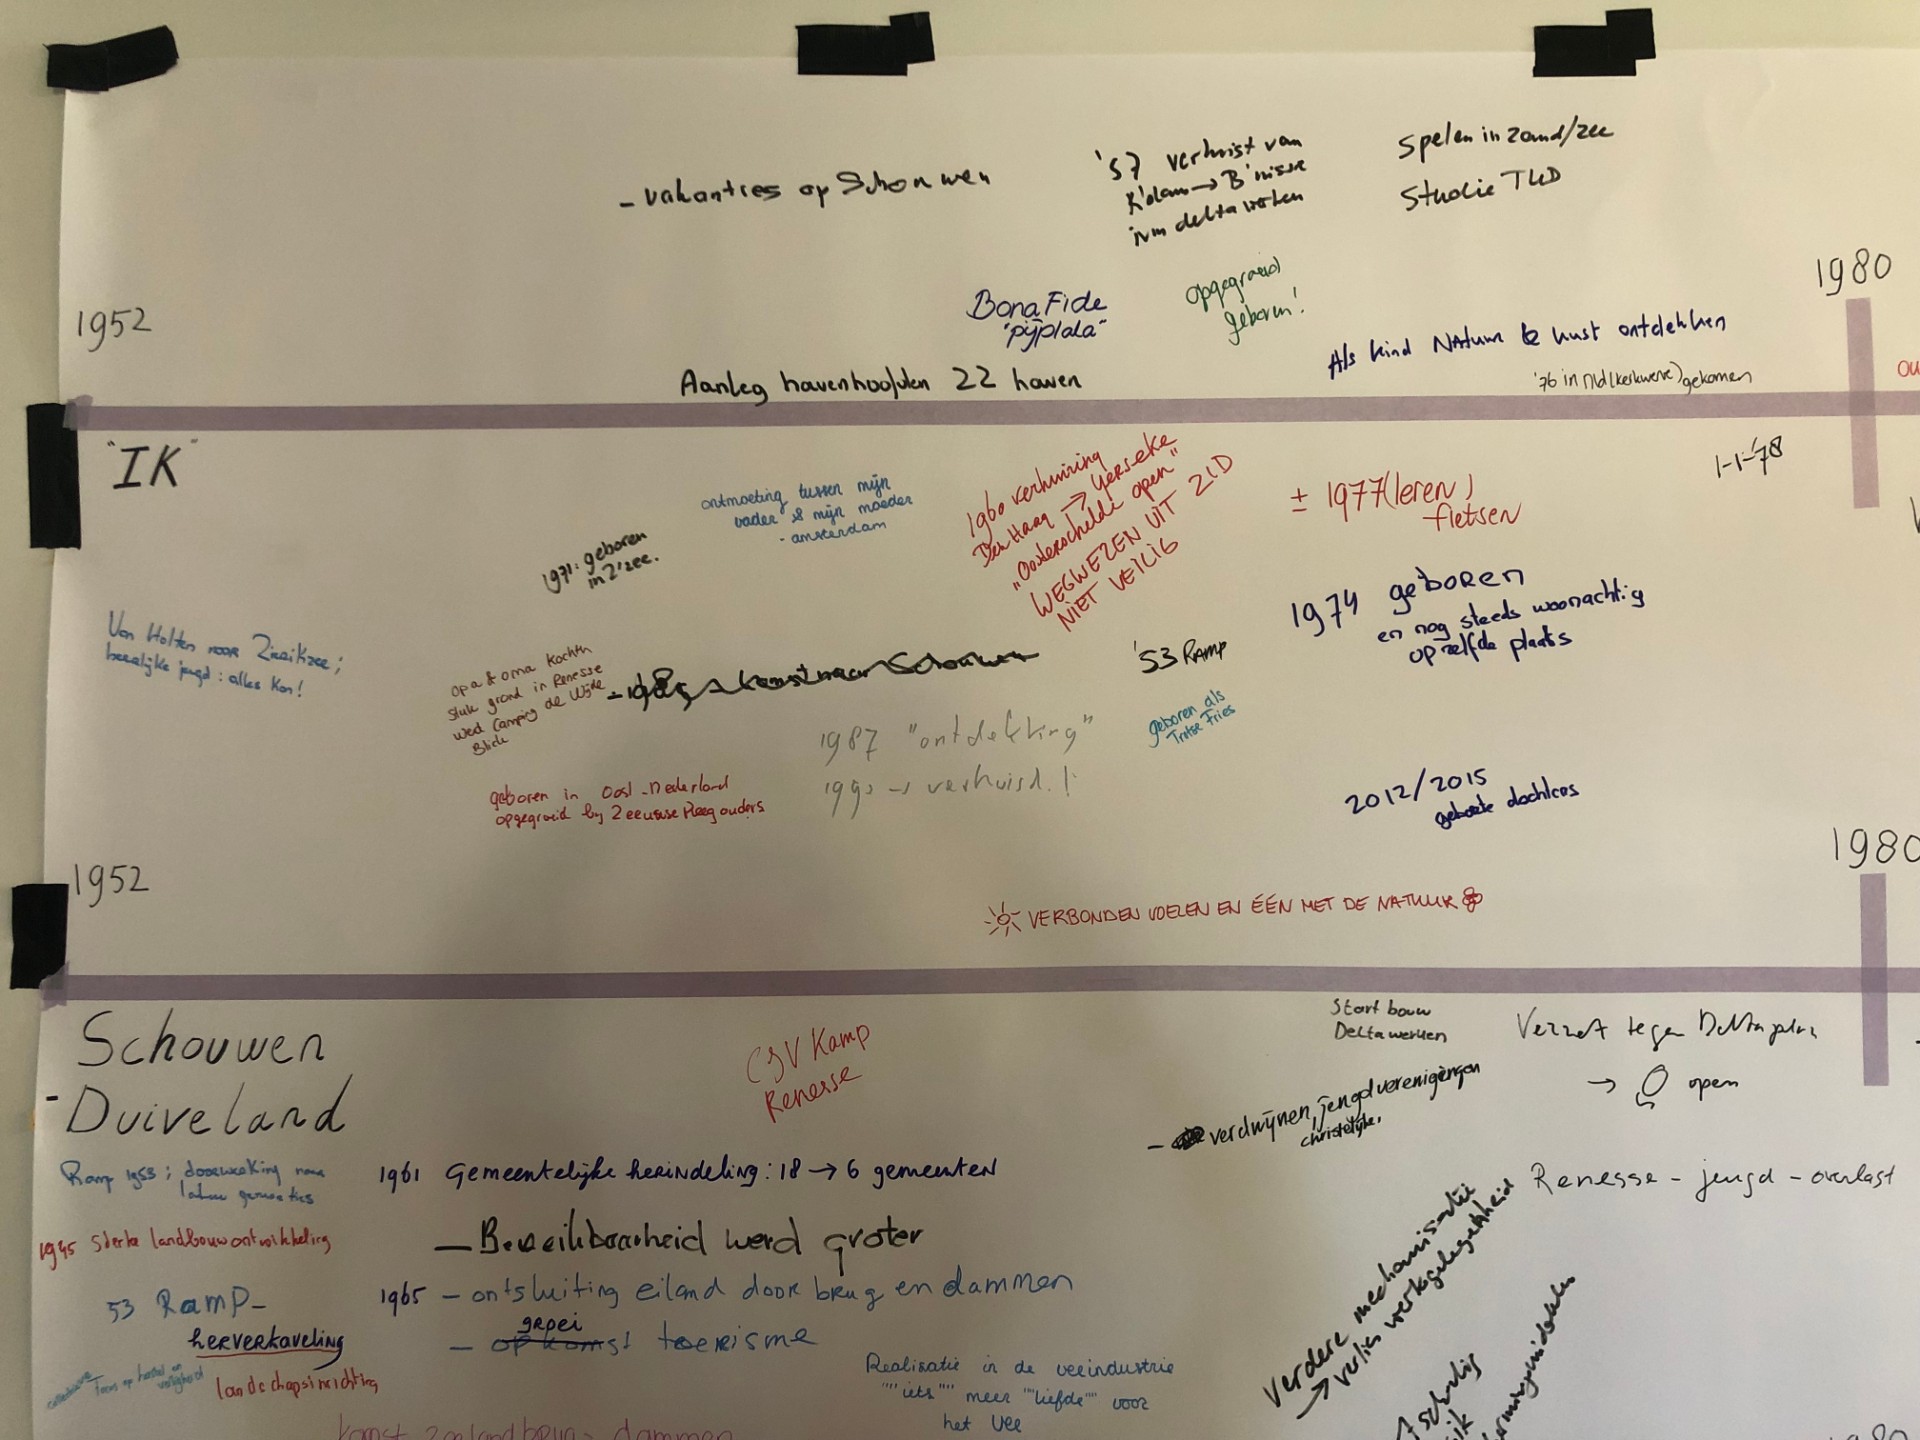 - vakanties op Schouwen
'57 verhuist van
R'dam → B'nisse
ivm deltawerken
Spelen in zand/zee
Studie TUD
1980
1952
Bona Fide
"pijplala"
opgegroeid
geboren!
Als kind Natuur & kust ontdekken
'76 in Nld (kerkwerve) gekomen
Aanleg havenhoofden 22 haven
ou
"IK"
1-1-'78
ontmoeting tussen mijn
vader & mijn moeder
- amsterdam
1971: geboren
in Z'zee.
1960 verhuizing
Den Haag → Yerseke
"Oosterschelde open"
WEGWEZEN UIT ZLD
NIET VEILIG
± 1977 (leren)
fietsen
1974 geboren
en nog steeds woonachtig
op zelfde plaats
Van Holten naar Zierikzee;
heerlijke jeugd: alles kon!
opa & oma kochten
stuk grond in Renesse
werd Camping de Wijde
Blick
'53 Ramp
geboren als
Trotse Fries
1987 "ontdekking"
→ verhuisd!
geboren in Oost-Nederland
opgegroeid bij Zeeuwse pleegouders
2012/2015
geboorte dochters
1952
1980
VERBONDEN VOELEN EN ÉÉN MET DE NATUUR
Schouwen
-Duiveland
CJV Kamp
Renesse
Start bouw
Deltawerken
Verzet tegen Deltaplan
→ O open
- verdwijnen jeugdverenigingen
christelijke.
Ramp 1953; doorwerking naar
latere generaties
1961 Gemeentelijke herindeling: 18 → 6 gemeenten
Renesse - jeugd - overlast
1945 Sterke landbouwontwikkeling
— Bereikbaarheid werd groter
53 Ramp-
herverkaveling
landschapsinrichting
1965 - ontsluiting eiland door brug en dammen
groei
- opkomst toerisme
Realisatie in de veeindustrie
""iets"" meer ""liefde"" voor
het vee
Verdere mechanisatie
→ verlies werkgelegenheid
komst Zeelandbrug - dammen